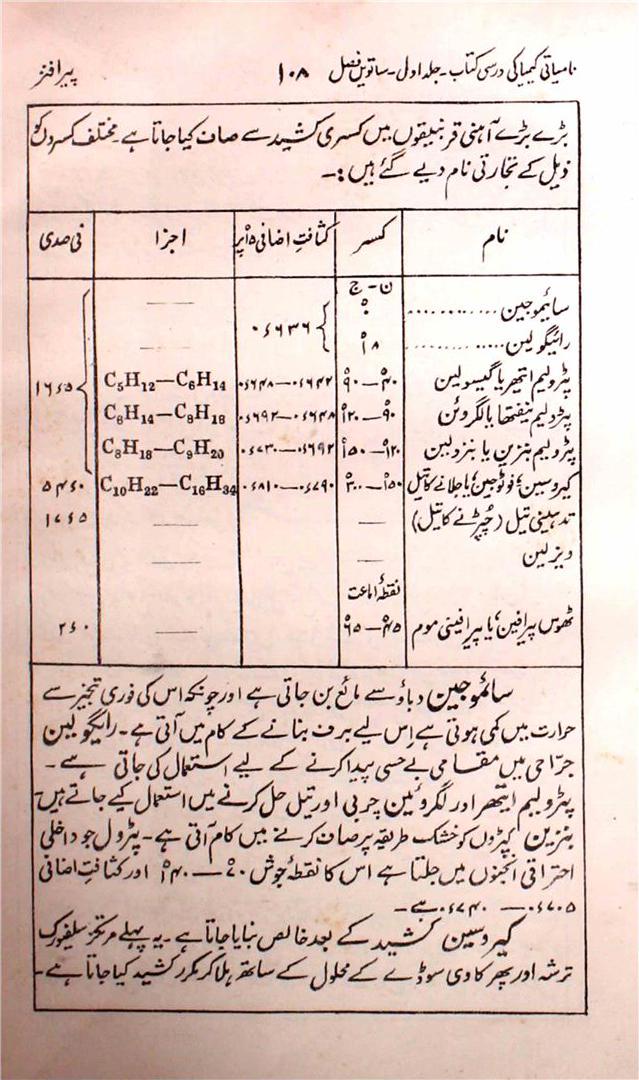 نامیاتی کیمیا کی درسی کتاب - جلد اول - ساتویں فصل ۱۰۸ پیرافنز
بڑے بڑے آہنی قرنبیقوں میں کسری کشید سے صاف کیا جاتا ہے۔ مختلف کسروں کو
ذیل کے تجارتی نام دیے گئے ہیں :۔
نام کسر کثافتِ اضافی ۱۵ْ پر اجزا فی صدی
ن - ج
سائموجین ............ ۰ْ ——
۰٫۶۳۶
رائیگولین ............ ۱۸ْ ——
پٹرولیم ایتھر یا گیسولین ۴۰ْ—۹۰ْ ۰٫۶۴۲—۰٫۶۴۸ C5H12—C6H14 ۱۶٫۵
پٹرولیم نیفتھا یا لگروئن ۹۰ْ—۱۲۰ْ ۰٫۶۴۸—۰٫۶۹۲ C6H14—C8H18
پٹرولیم بنزین یا بنزولین ۱۲۰ْ—۱۵۰ْ ۰٫۶۹۲—۰٫۷۳۰ C8H18—C9H20
کیروسین، فوٹوجین، یا جلانے کا تیل ۱۵۰ْ—۳۰۰ْ ۰٫۷۹۰—۰٫۸۱۰ C10H22—C16H34 ۵۴٫۰
تدہینی تیل (چپڑنے کا تیل) —— ۱۷٫۵
ویزلین —— ——
نقطۂ اماعت
ٹھوس پیرافین، یا پیرافینی موم ۴۵ْ—۶۵ْ —— ۲٫۰
سائموجین دباؤ سے مائع بن جاتی ہے اور چونکہ اس کی فوری تبخیر سے
حرارت میں کمی ہوتی ہے اِس لیے برف بنانے کے کام میں آتی ہے۔ رائیگولین
جرّاحی میں مقامی بے حسی پیدا کرنے کے لیے استعمال کی جاتی ہے۔
پٹرولیم ایتھر اور لگروئین چربی اور تیل حل کرنے میں استعمال کیے جاتے ہیں۔
بنزین کپڑوں کو خشک طریقہ پر صاف کرنے میں کام آتی ہے۔ پٹرول جو داخلی
احتراقی انجنوں میں جلتا ہے اس کا نقطۂ جوش ۷۰ْ—۱۴۰ْ اور کثافتِ اضافی
۰٫۷۰۵—۰٫۷۴۰ ہے۔
کیروسین کشید کے بعد خالص بنایا جاتا ہے۔ یہ پہلے مرتکز سلفیورک
ترشہ اور پھر کاوی سوڈے کے محلول کے ساتھ ہلا کر مکرر کشید کیا جاتا ہے۔